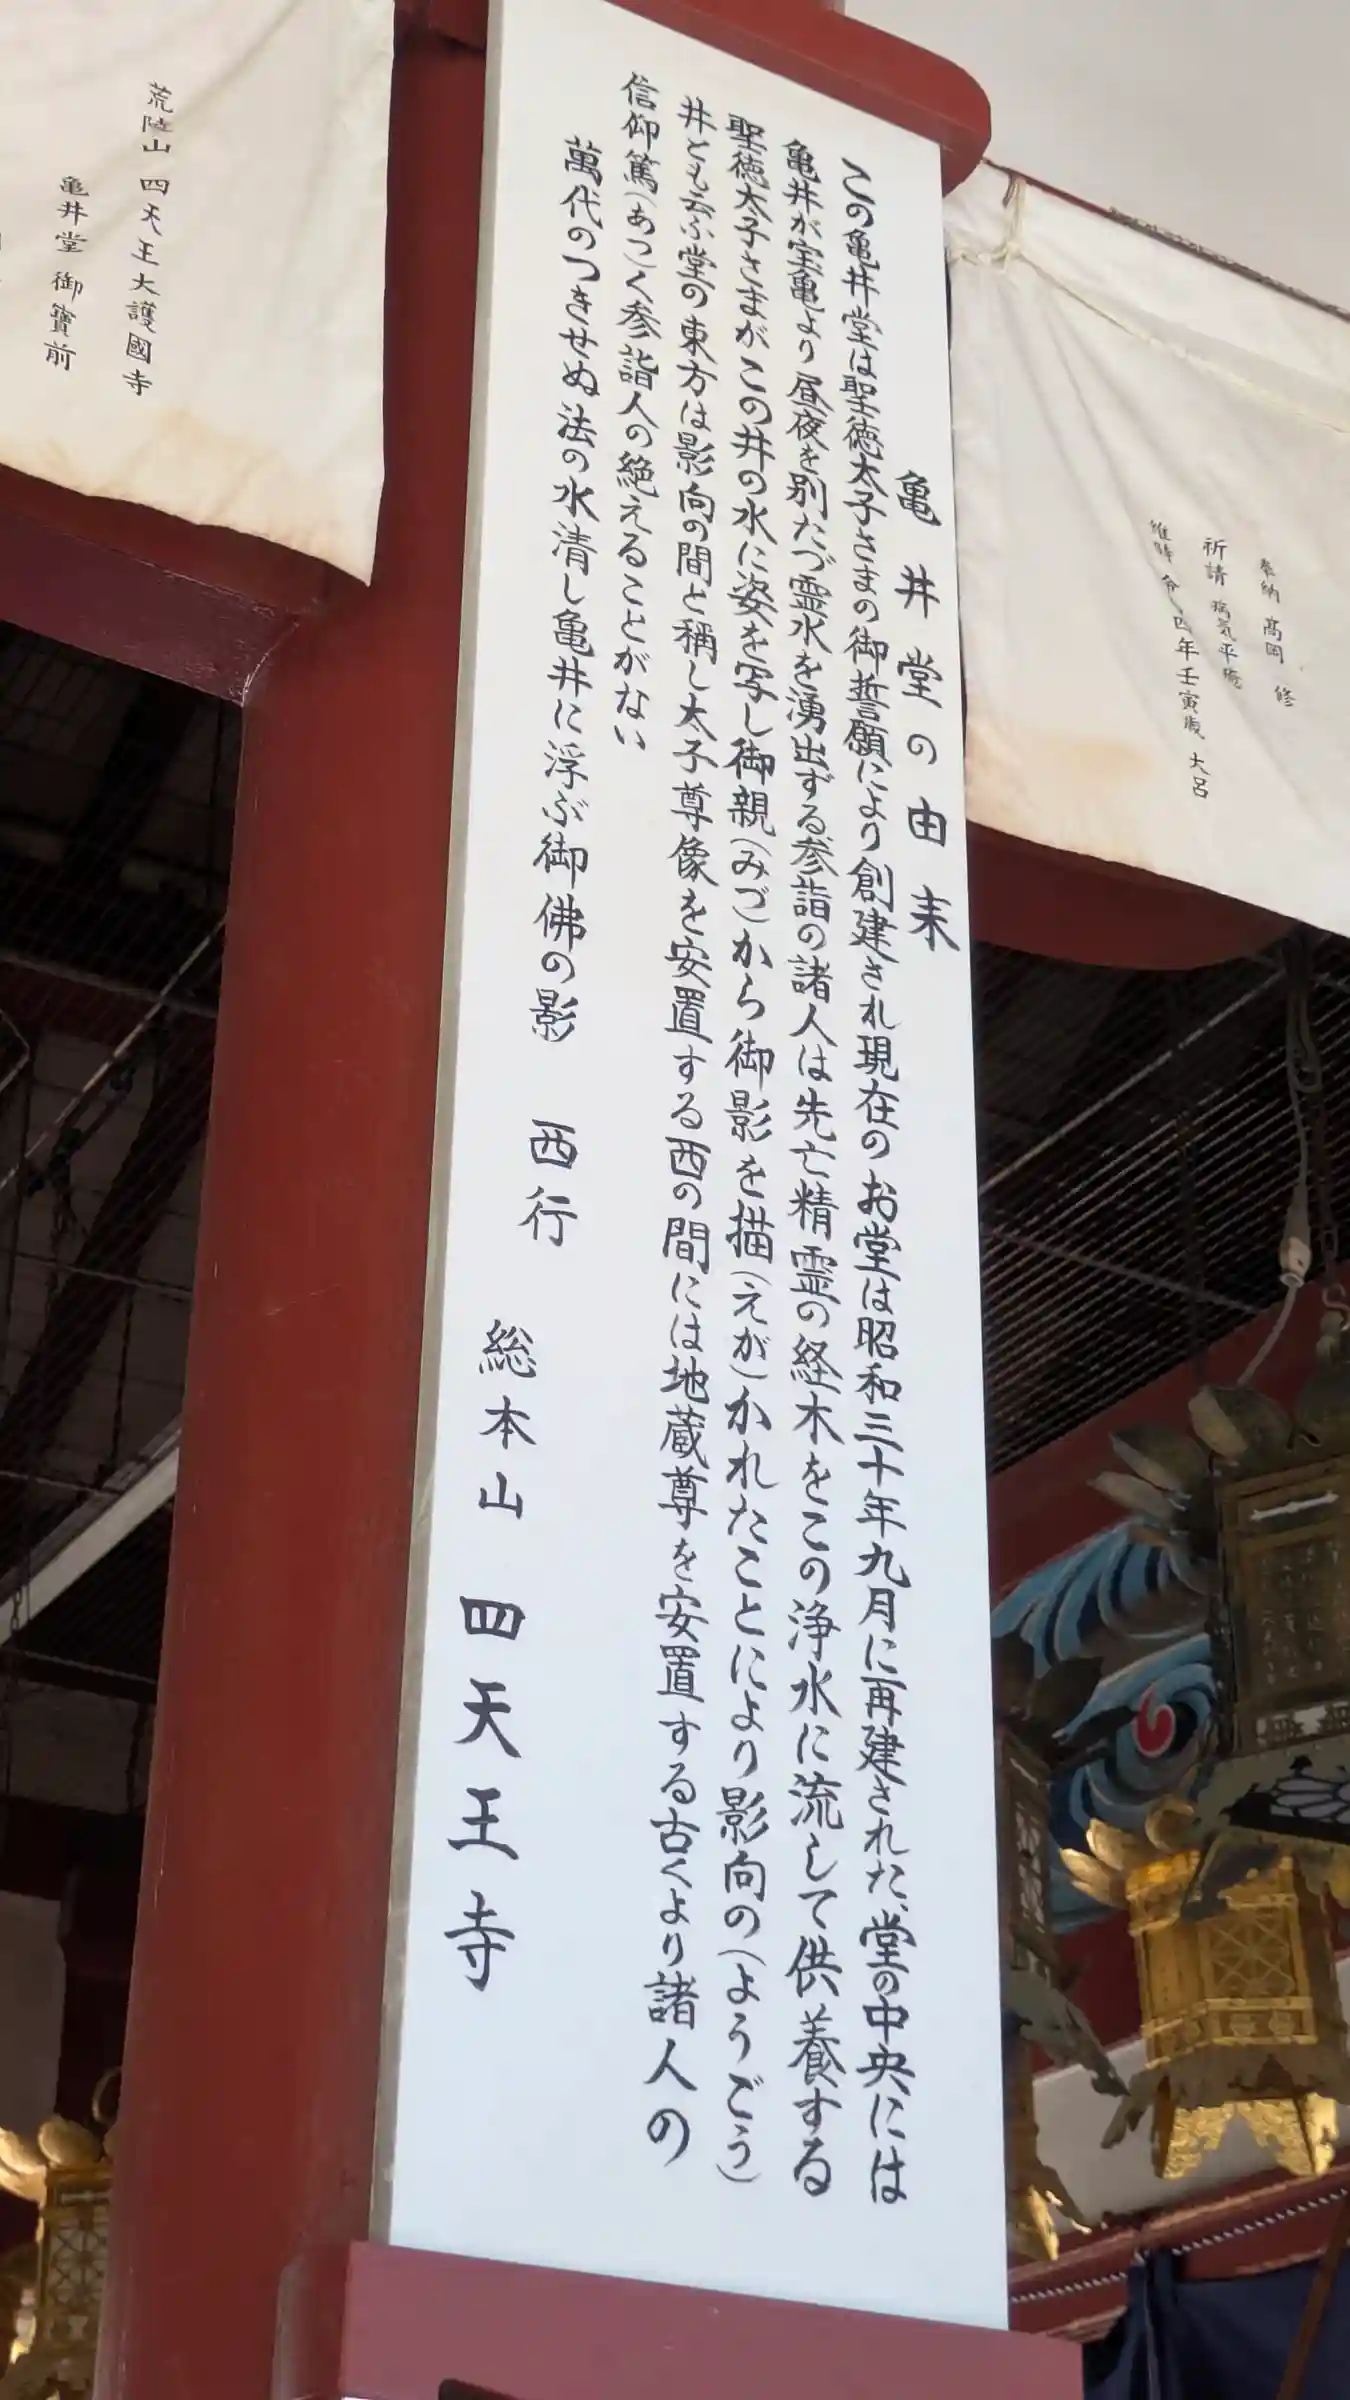 亀井堂の由来
この亀井堂は聖徳太子さまの御誓願により創建され現在のお堂は昭和三十年九月に再建された、堂の中央には
亀井が宝亀より昼夜を別たづ霊水を湧出ずる参詣の諸人は先亡精霊の経木をこの浄水に流して供養する
聖徳太子さまがこの井の水に姿を写し御親(みづ)から御影を描(えが)かれたことにより影向の(ようごう)
井とも云ふ堂の東方は影向の間と稱し太子尊像を安置する西の間には地蔵尊を安置する古くより諸人の
信仰篤(あつ)く参詣人の絶えることがない
萬代のつきせぬ法の水清し亀井に浮ぶ御佛の影 西行
総本山 四天王寺
奉納 髙岡 修
祈請 病気平癒
維時 令 四年壬寅歳 大呂
荒陵山 四天王大護國寺
亀井堂 御寶前